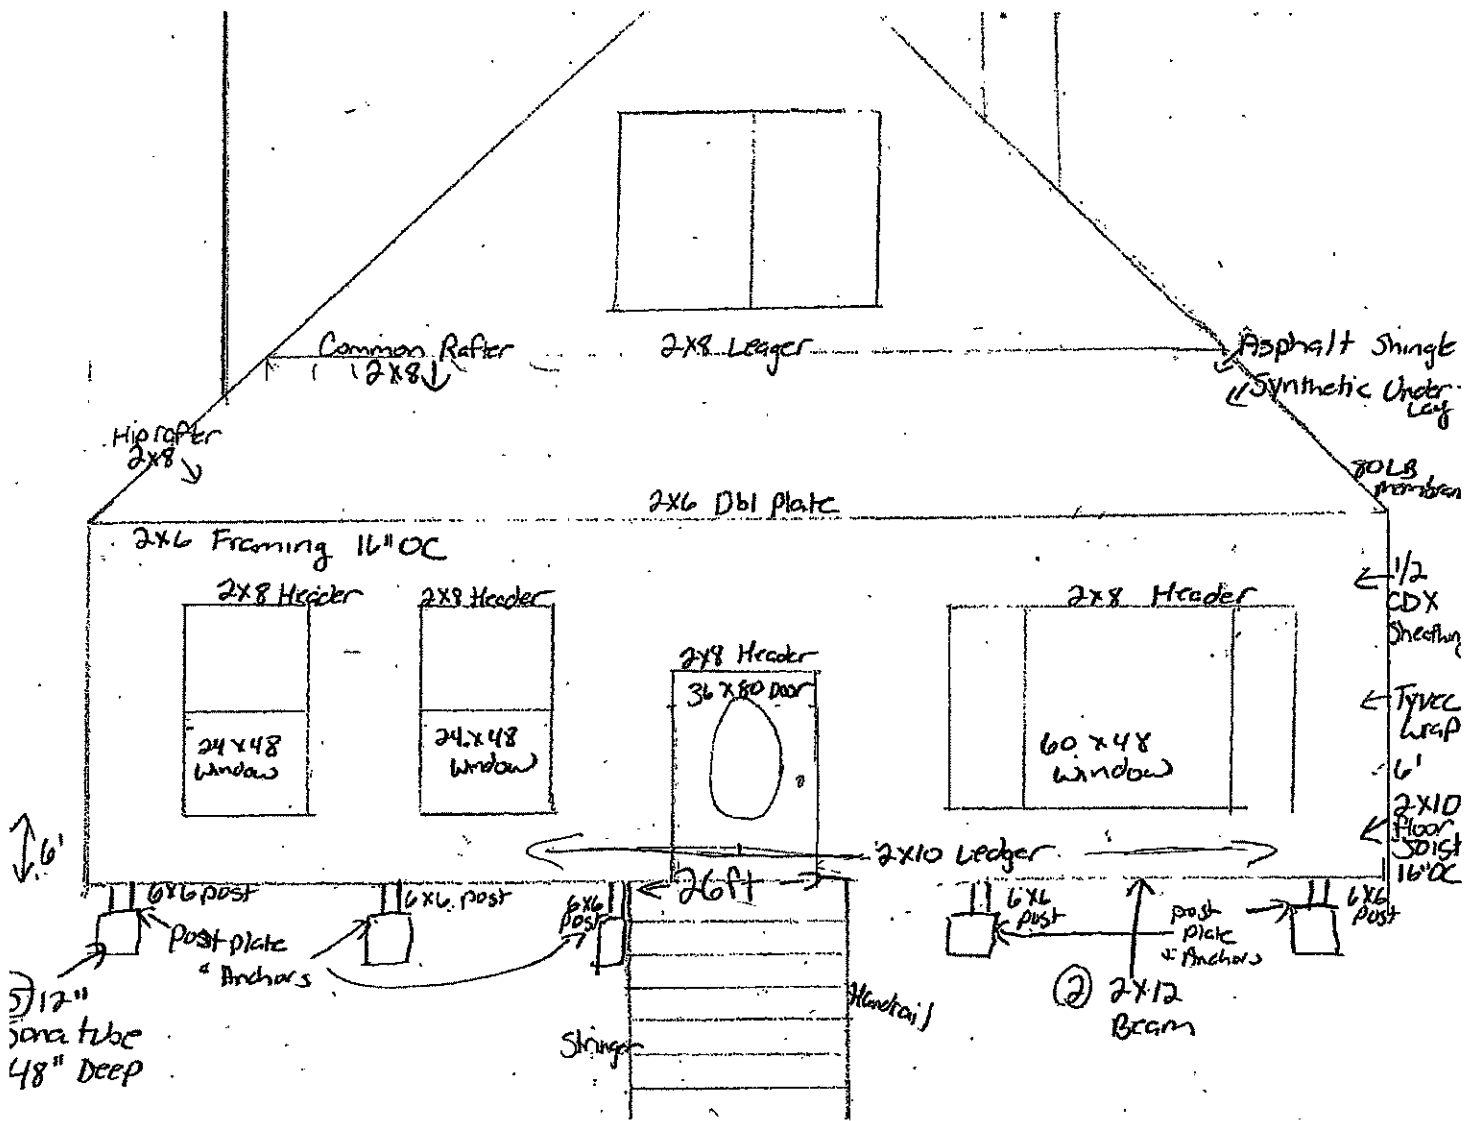 Common Rafter
2x8
2x8 Leager
Asphalt Shingle
Synthetic Under-
Lay
Hip rafter
2x8
80LB
membran
2x6 Dbl plate
2x6 Framing 16" OC
2x8 Header
2x8 Header
2x8 Header
1/2
CDX
Sheathing
2x8 Header
36 x 80 Door
24 x 48
window
24 x 48
window
60 x 48
window
Tyvec
Wrap
6'
2x10
floor
Joist
16" OC
6'
2x10 Ledger
26ft
6x6 post
6x6 post
6x6
post
6x6
post
6x6
post
post plate
& Anchors
post
plate
& Anchors
5) 12"
Sona tube
48" Deep
Stringer
Handrail
2 2x12
Beam